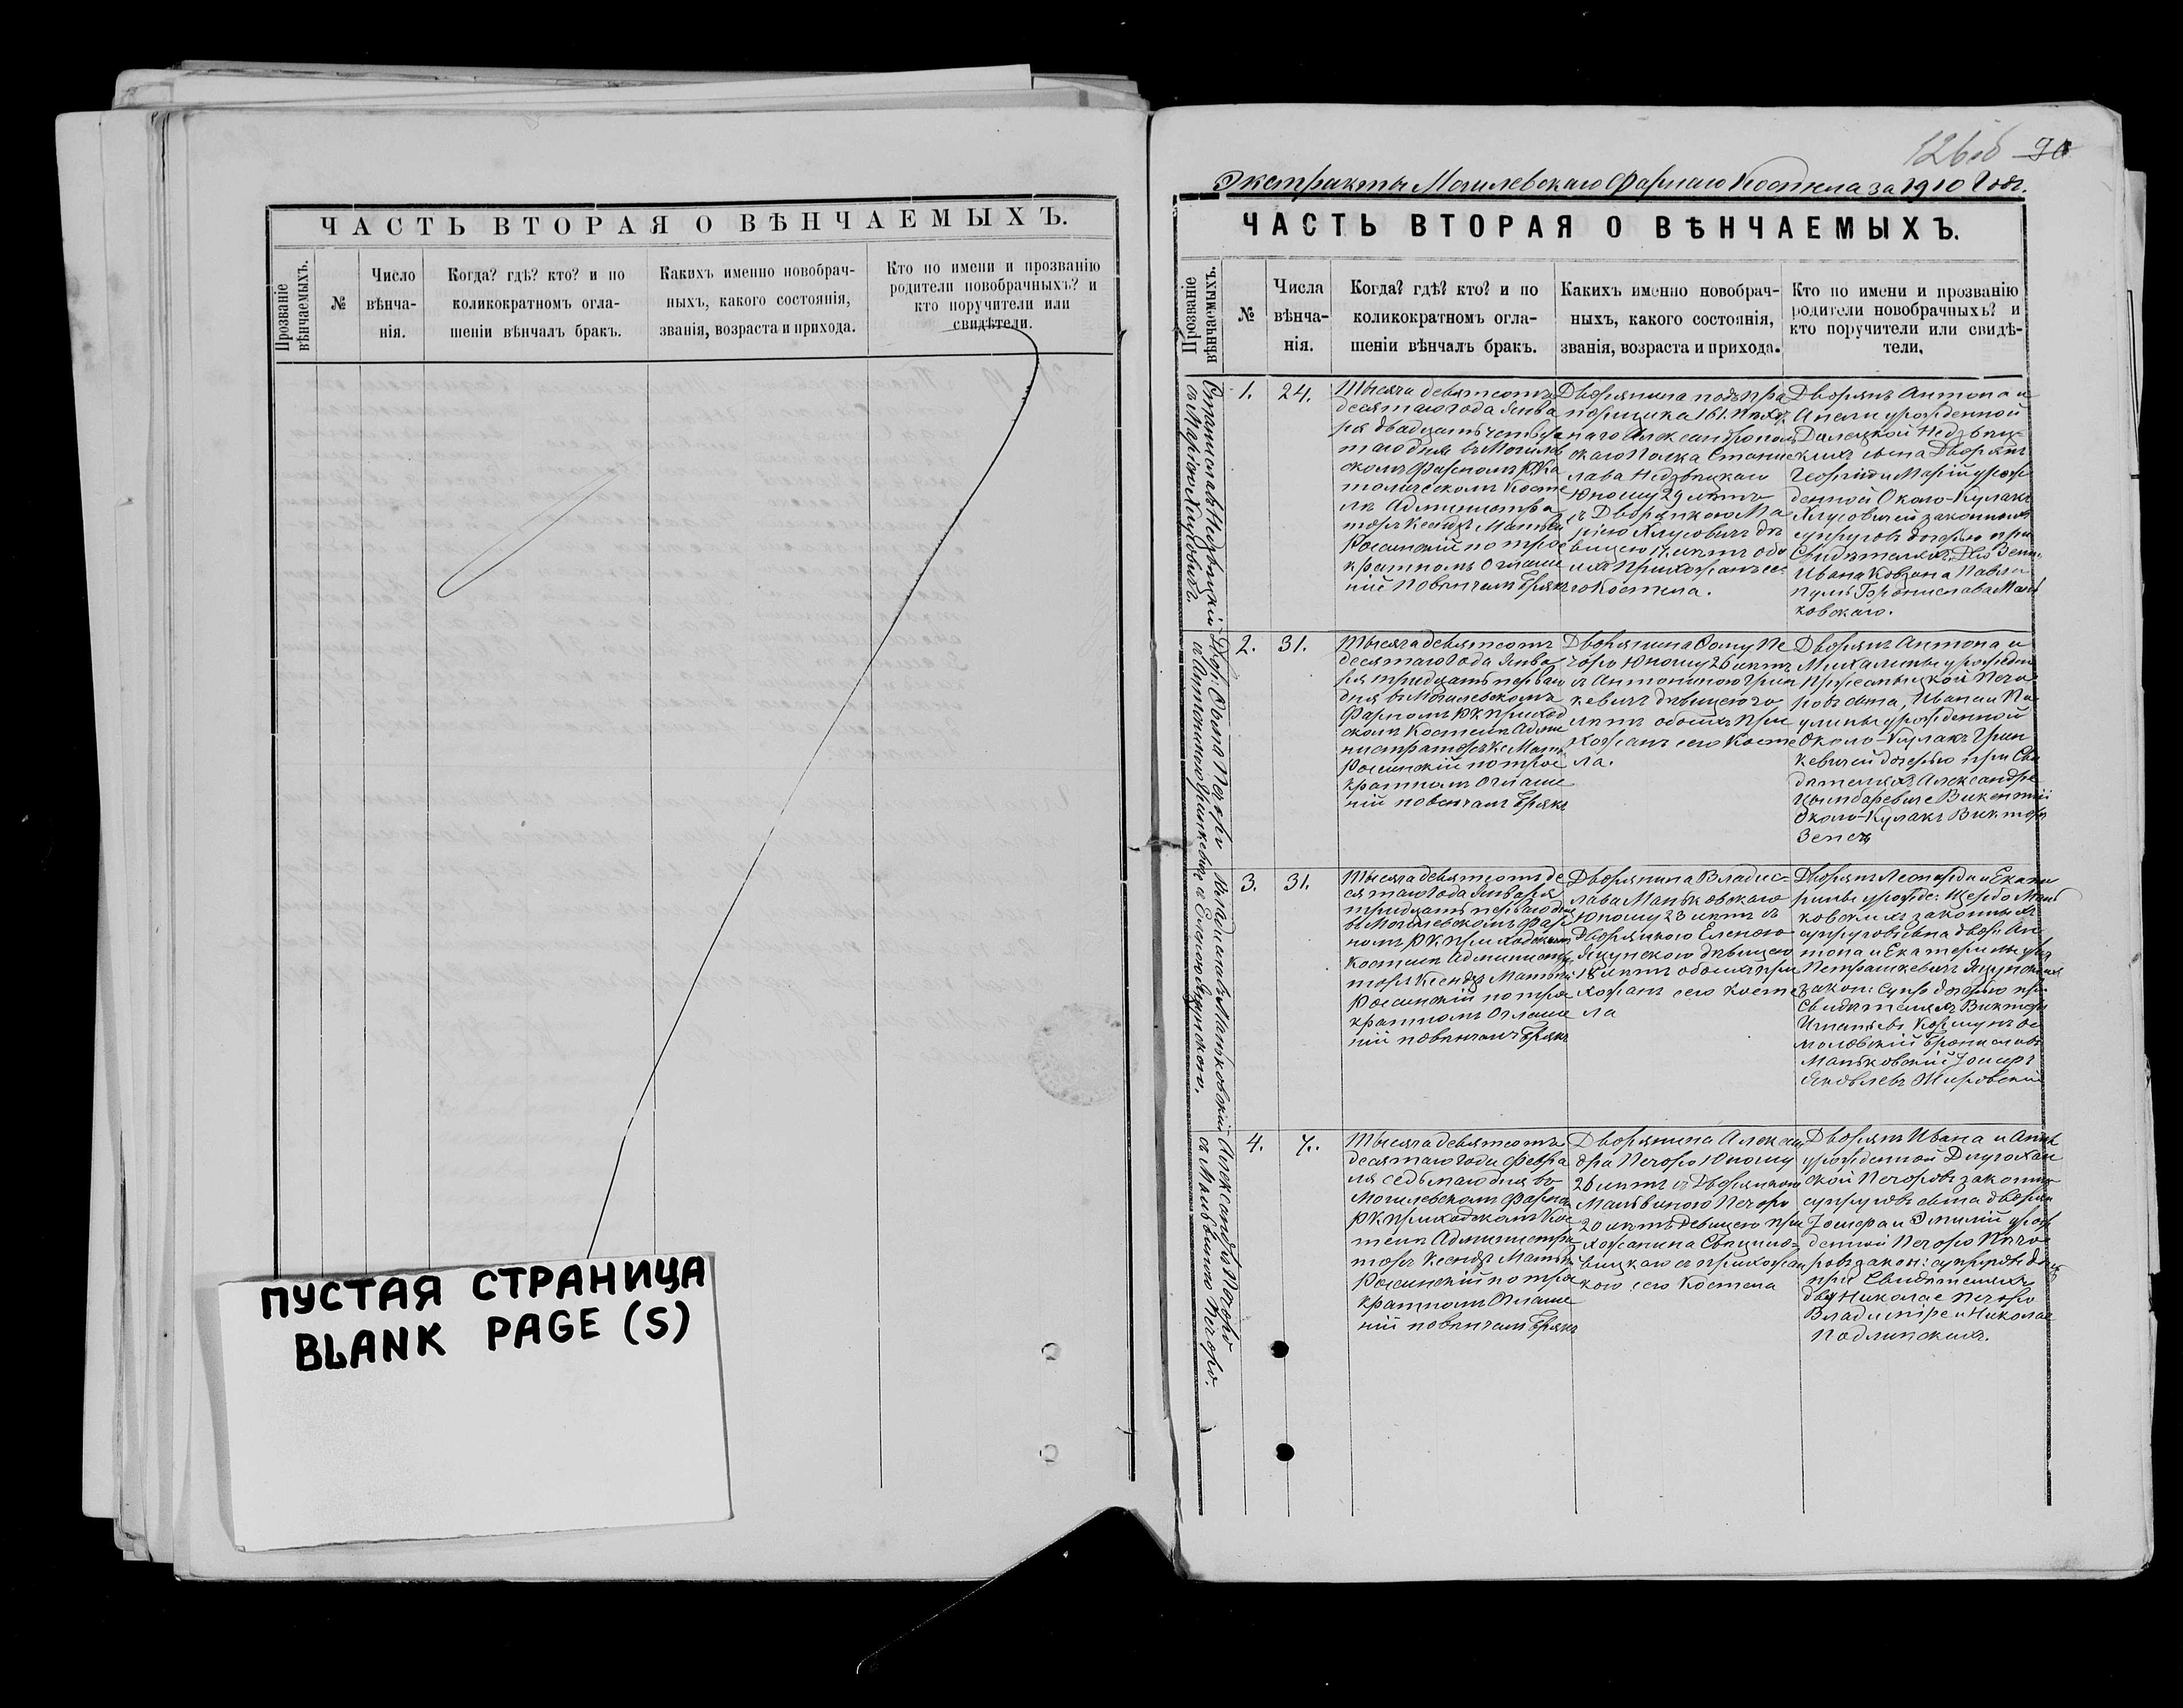 ЧАСТЬ ВТОРАЯ О ВѢНЧАЕМЫХЪ.
Прозваніе вѣнчаемыхъ.
№
Число вѣнча-
нія.
Когда? гдѣ? кто? и по
коликократномъ огла-
шеніи вѣнчалъ бракъ.
Какихъ именно новобрач-
ныхъ, какого состоянія,
званія, возраста и прихода.
Кто по имени и прозванію
родители новобрачныхъ? и
кто поручители или
свидѣтели.
ПУСТАЯ СТРАНИЦА
BLANK PAGE (S)
126об 90
Экстракты Могилевскаго Фарнаго Костела за 1910 Годъ.
ЧАСТЬ ВТОРАЯ О ВѢНЧАЕМЫХЪ.
Прозваніе
вѣнчаемыхъ.
№
Числа
вѣнча-
нія.
Когда? гдѣ? кто? и по
коликократномъ огла-
шеніи вѣнчалъ бракъ.
Какихъ именно новобрач-
ныхъ, какого состоянія,
званія, возраста и прихода.
Кто по имени и прозванію
родители новобрачныхъ? и
кто поручители или свидѣ-
тели.
Станиславъ Недзвѣцкій
съ Маріею Хлусовичъ.
1.
24.
Тысяча девятсотъ
десятаго года Янва
ря двадцать четвер
таго дня въ Могилев
скомъ Фарномъ Р.Ка
толическомъ Косте
лѣ Администра
торъ Ксендзъ Матвѣй
по трое
кратномъ Оглаше
ніи повѣнчалъ бракъ
Дворянина подъ пра
порщика 161. пѣхот
наго Александрополь
скаго Полка Станис
лава Недзвѣцкаго
Юношу 29 лѣтъ
съ Дворянкою Ма
ріею Хлусовичъ дѣ
вицею 17 лѣтъ обо
ихъ Прихожанъ се
го Костела.
Дворянъ Антона и
урожденной
Недзвѣц-
кихъ сына Дворянъ
Георгія и Маріи урож
денной Около-Кулакъ
Хлусовичей законныхъ
супруговъ дочерью при
Свидѣтеляхъ
Ивана Павла
Бронислава Мань
ковскаго.
Двор: Ѳома Печоро
съ Антониною Гринкевичъ
2.
31.
Тысяча девятсотъ
десятаго года Янва
ря тридцать перваго
дня въ Могилевскомъ
Фарномъ РК приход
скомъ Костелѣ Адми
нистраторъ Кс Матв
по трое
кратномъ Оглаше
ніи повѣнчалъ бракъ
Дворянина Ѳому Пе
чоро Юношу 26 лѣтъ
съ Антониною Грин
кевичъ дѣвицею 20
лѣтъ обоихъ При
хожанъ сего Косте
ла.
Дворянъ Антона и
Михалины урожден
Печо
ровъ сына, Ивана и Па
улины урожденной
Около-Кулакъ Грин
кевичей дочерью при Сви
дѣтеляхъ Александрѣ
Цымбаревиче Викентій
Около-Кулакъ Викторъ
Владиславъ Маньковскій
съ Еленою Яцунскою.
3.
31.
Тысяча девятсотъ де
сятаго года Января
тридцать перваго дня
въ Могилевскомъ Фар
номъ РК приходскомъ
Костелѣ Администра
торъ Ксендзъ Матвѣй
по трое
кратномъ Оглаше
ніи повѣнчалъ бракъ
Дворянина Владис-
лава Маньковскаго
Юношу 23 лѣтъ съ
Дворянкою Еленою
Яцунскою дѣвицею
18 лѣтъ обоихъ при
хожанъ сего Косте
ла
Дворянъ Леонарда и Екате
рины урожде: Щербо Мань
ковскихъ законныхъ
супруговъ сына двор: Ан
тона и Екатерины ур:
Петрашкевичъ Яцунскихъ
закон: супр дочерью при
Свидѣтеляхъ Викторъ
Брониславъ
Маньковскій Іосифъ
Александръ Печоро
съ Мальвиною Печоро.
4.
7.
Тысяча девятсотъ
десятаго года Февра
ля седьмаго дня въ
Могилевскомъ Фарном
РК приходскомъ Кос
телѣ Администра
торъ Ксендзъ Матвѣй
по трое
кратномъ Оглаше
ніи повѣнчалъ бракъ
Дворянина Алексан
дра Печоро Юношу
26 лѣтъ съ Дворянкою
Мальвиною Печоро
20 лѣтъ дѣвицею при
хожанина
съ прихожан
кою сего Костела
Дворянъ Ивана и Анны
урожденной
Печоровъ законныхъ
супруговъ сына дворян
Іосифа и Эмиліи урож
денной Печоро Печо
ровъ закон: супруговъ доч
при Свидѣтеляхъ
двор Николае Печоро
Владимірѣ и Николае
Подлинскихъ.